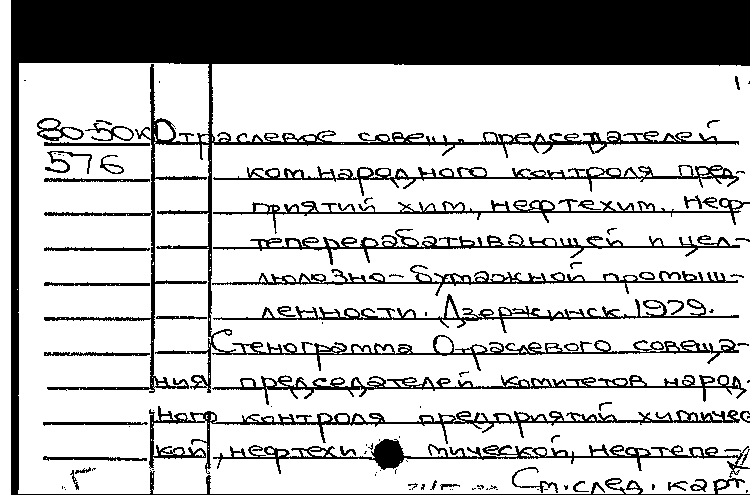 80-50к Отраслевое совещ. председателей
576 ком. народного контроля пред-
приятий хим., нефтехим., неф-
теперерабатывающей и цел-
люлозно-бумажной промыш-
ленности. Дзержинск. 1979.
Стенограмма Отраслевого совеща-
ния председателей комитетов народ-
ного контроля предприятий химичес
кой, нефтехимической, нефтепе-
См. след. карт.